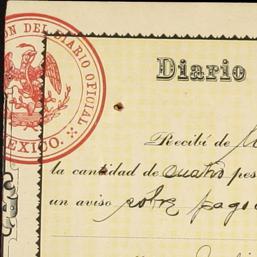 ON DEL DIARIO OFICIAL
MEXICO.
Diario
Recibí de
la cantidad de cuatro pes
un aviso sobre pago